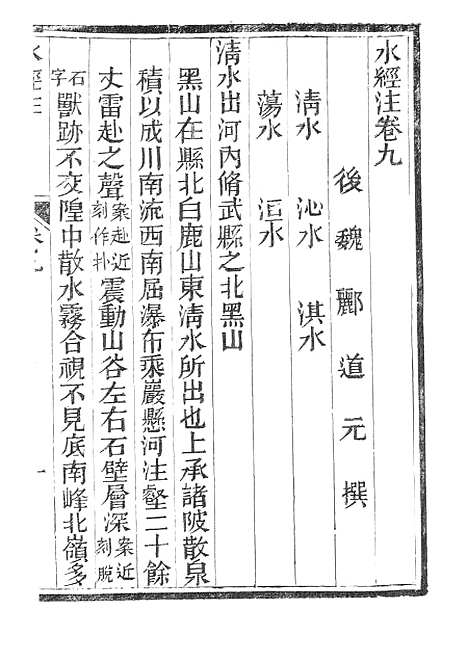 水經注卷九
後魏酈道元撰
淸水 沁水 淇水
蕩水 洹水
淸水出河內脩武縣之北黑山
黑山在縣北白鹿山東淸水所出也上承諸陂散泉
積以成川南流西南屈瀑布乘巖懸河注壑二十餘
丈雷赴之聲案赴近刻作扑震動山谷左右石壁層深案近刻脫
石字獸跡不交隍中散水霧合視不見底南峰北嶺多
水經注 卷九 一